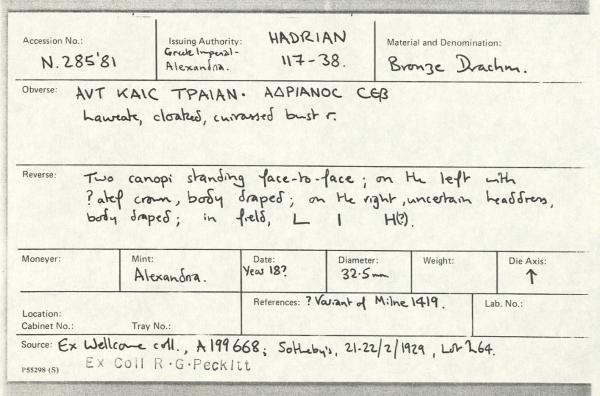 Accession No.:
N.285'81
Issuing Authority: HADRIAN
Greek Imperial-
Alexandria. 117-38.
Material and Denomination:
Bronze Drachm.
Obverse: ΑVΤ ΚΑΙC ΤΡΑΙΑΝ· ΑΔΡΙΑΝΟC CЄΒ
Laureate, cloaked, cuirassed bust r.
Reverse: Two canopi standing face-to-face; on the left with
?atef crown, body draped; on the right, uncertain headdress,
body draped; in field, L I H(?).
Moneyer:
Mint:
Alexandria.
Date:
Year 18?
Diameter:
32.5mm
Weight:
Die Axis:
↑
Location:
Cabinet No.: Tray No.:
References: ? Variant of Milne 1419.
Lab. No.:
Source: Ex Wellcome coll., A199668; Sotheby's, 21-22/2/1929, Lot 264.
Ex Coll R·G·Peckitt
P55298 (S)